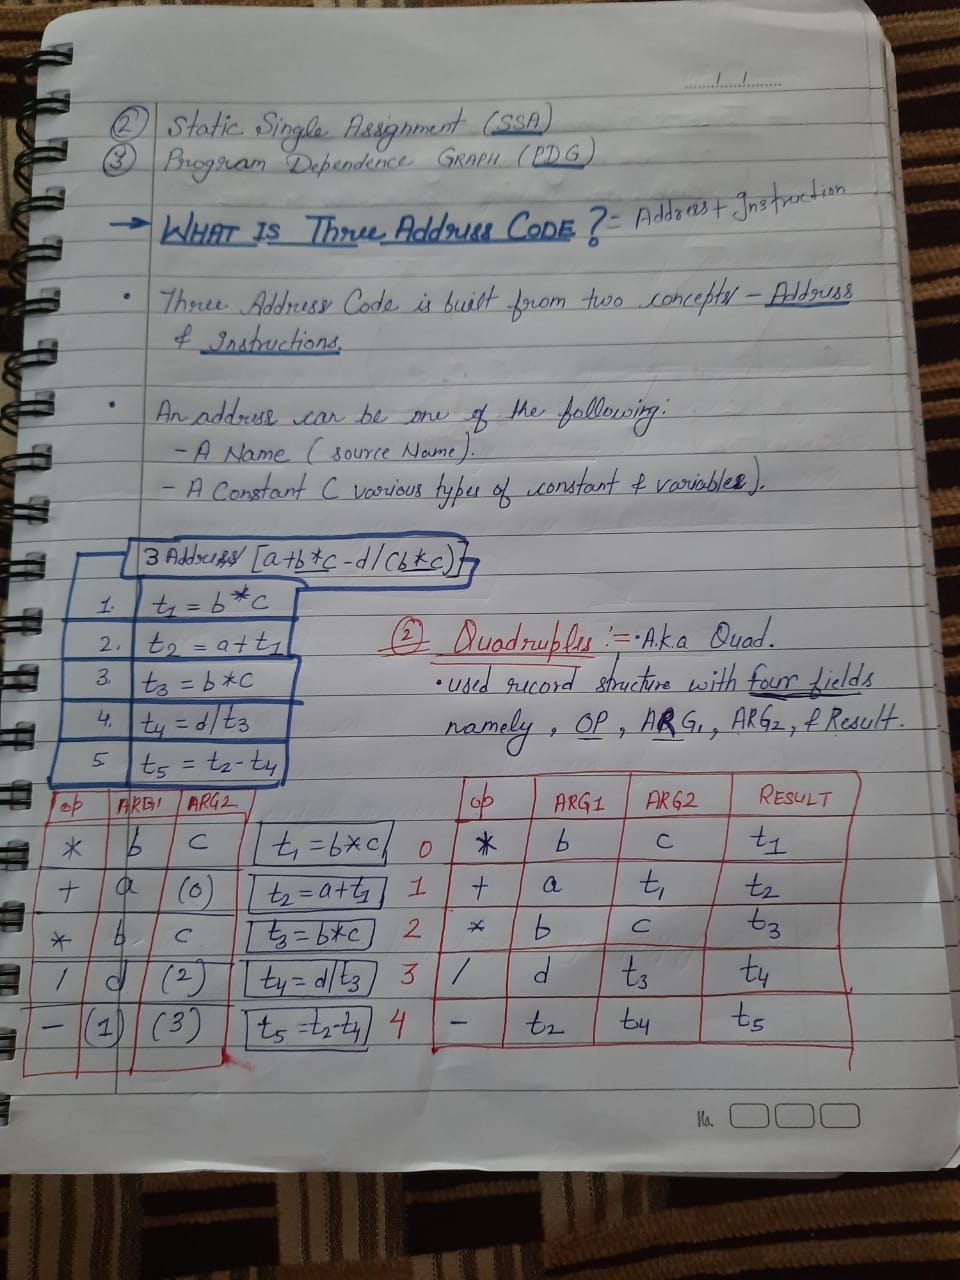 ② Static Single Assignment (SSA)
③ Program Dependence GRAPH (PDG)
→ WHAT IS Three Address CODE? = Address + Instruction
• Three Address Code is built from two concepts – Address
& Instructions.
• An address can be one of the following:
- A Name (source Name).
- A Constant ( various types of constant & variables).
3 Address [a+b*c-d/(b*c)]
1. t1 = b*c
2. t2 = a+t1
3. t3 = b*c
4. t4 = d/t3
5. t5 = t2-t4
② Quadruples := • A.k.a Quad.
• used record structure with four fields
namely, OP, ARG1, ARG2, & Result.
OP ARG1 ARG2
* b c t1=b*c
+ a (0) t2=a+t1
* b c t3=b*c
/ d (2) t4=d/t3
- (1) (3) t5=t2-t4
OP ARG1 ARG2 RESULT
0 * b c t1
1 + a t1 t2
2 * b c t3
3 / d t3 t4
4 - t2 t4 t5
No.